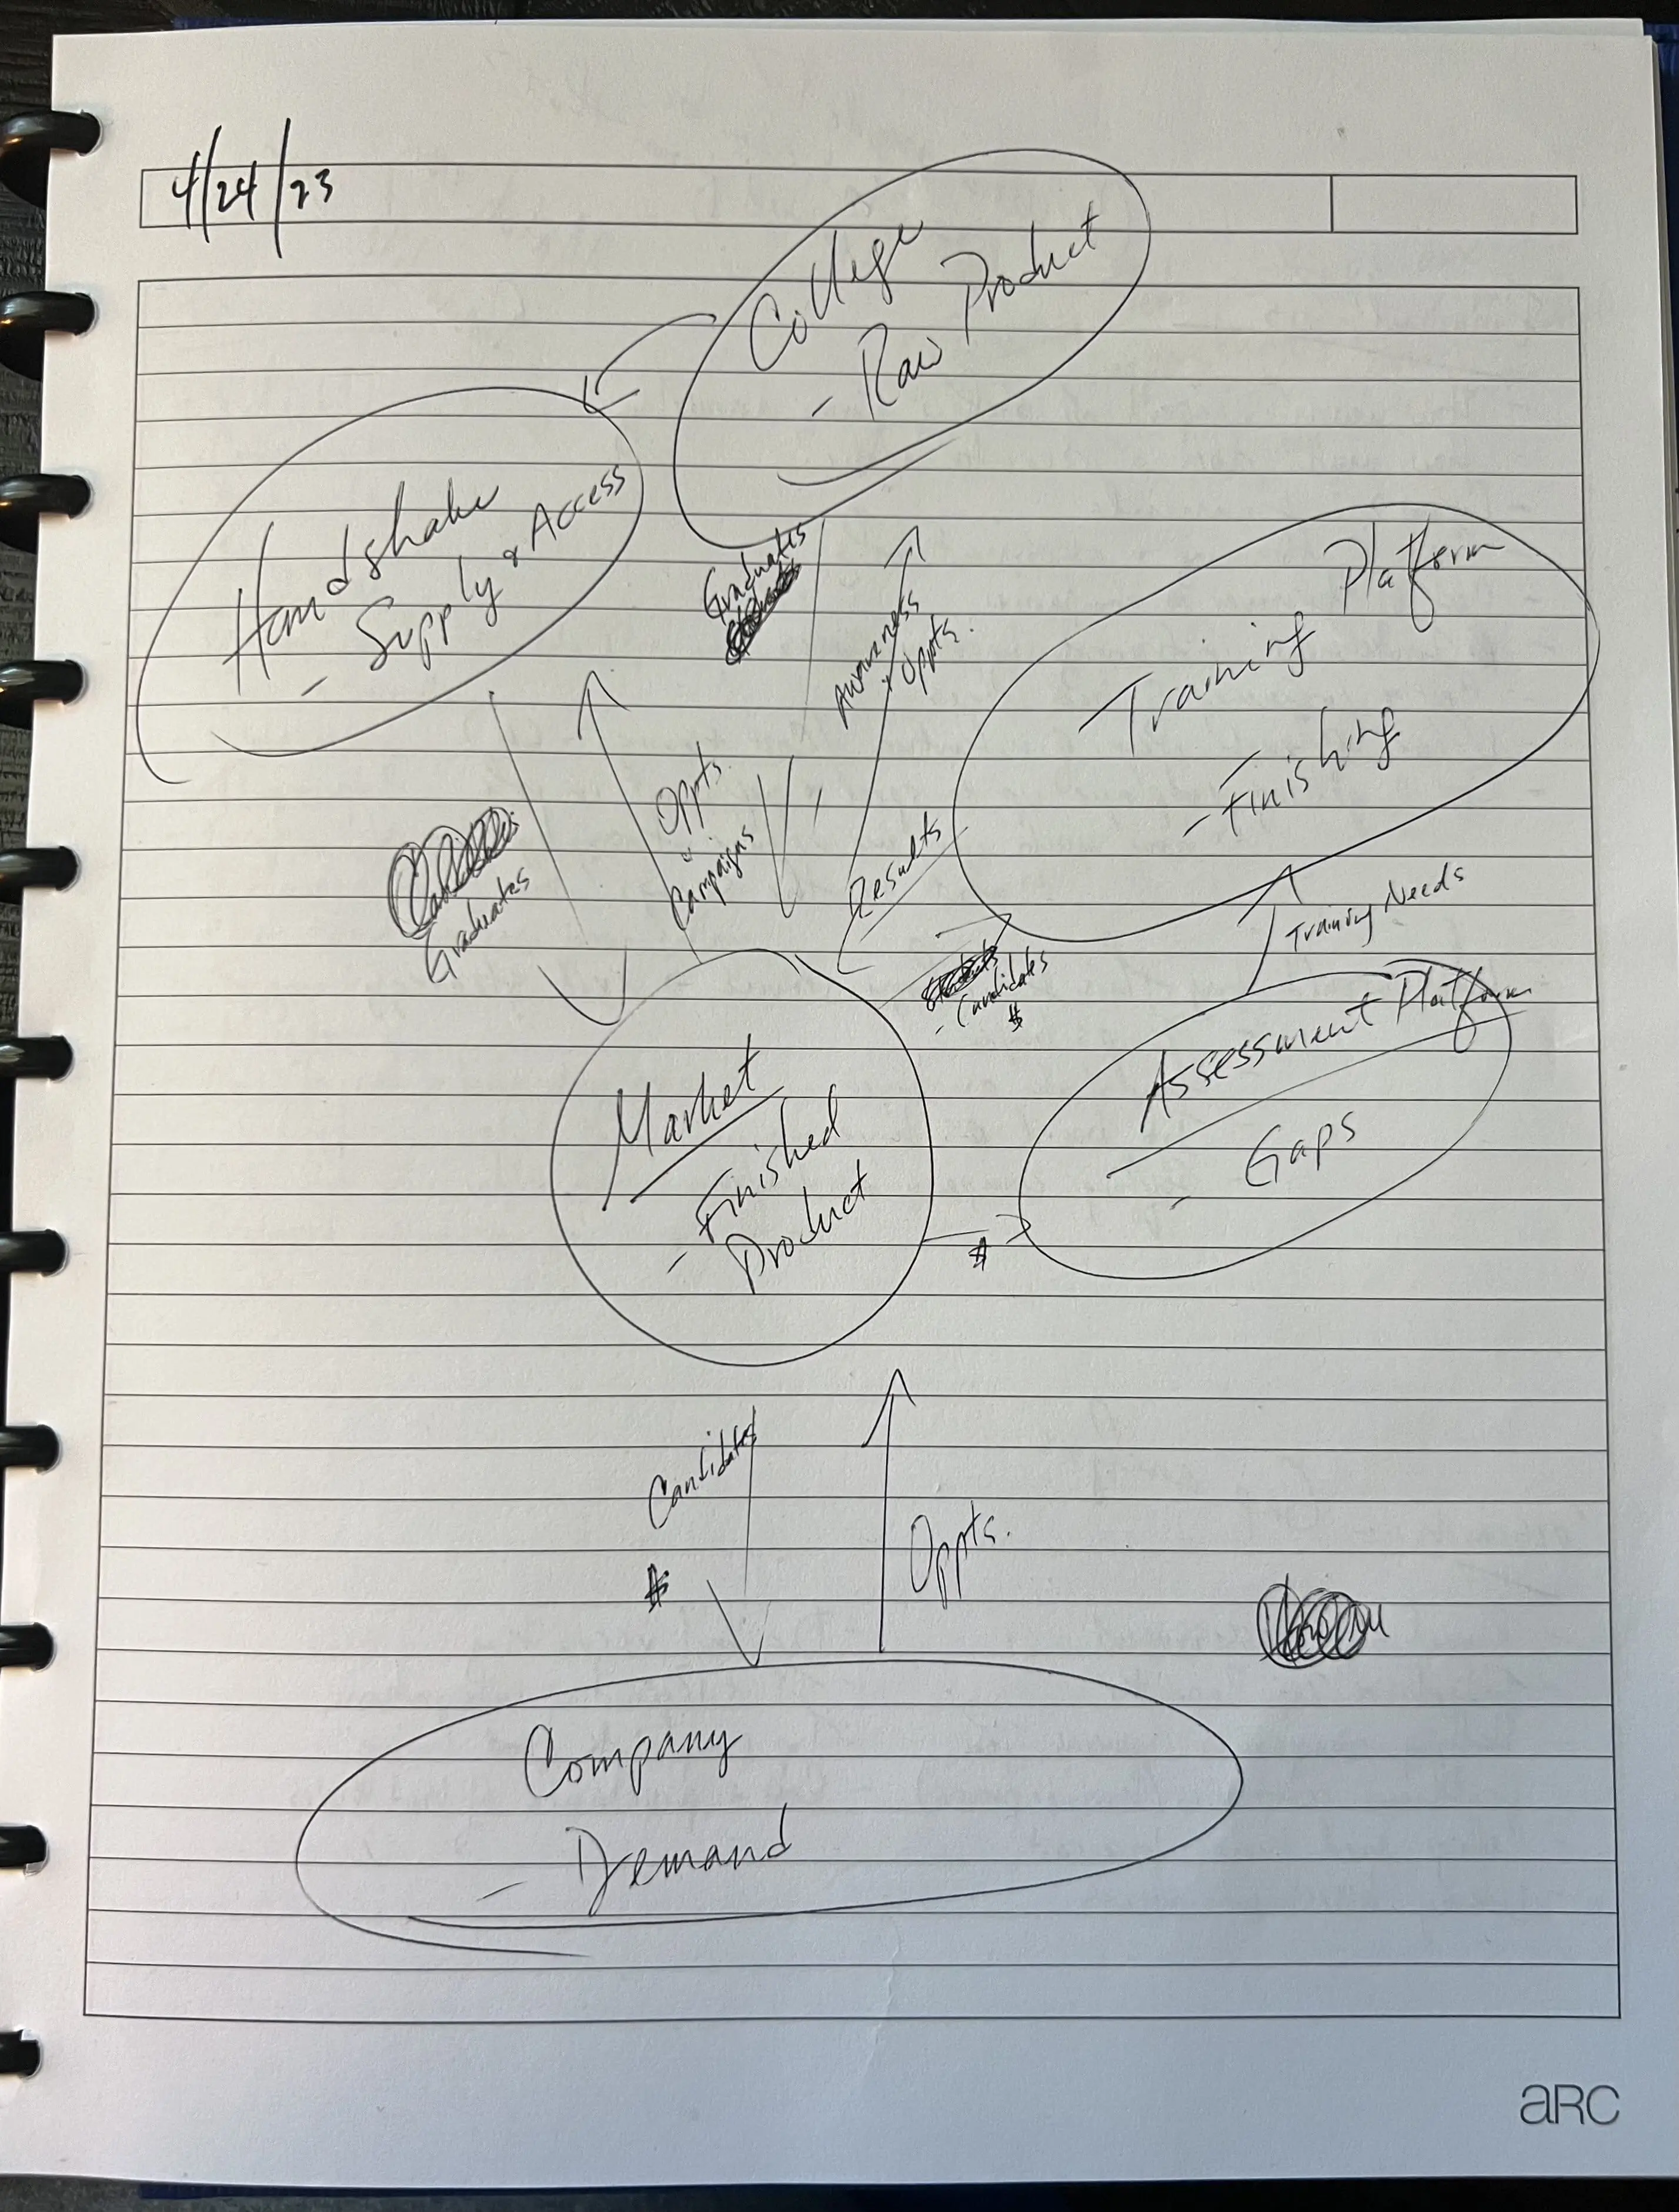 4/24/23
College
- Raw Product
Handshake
- Supply & Access
Graduates
Awareness
& Oppts.
Training Platform
- Finishing
Oppts.
Campaigns
Graduates
Results
Training Needs
- Candidates
$
Assessment Platform
- Gaps
Market
- Finished
Product
$
Candidates
$
Oppts.
Company
- Demand
aRC